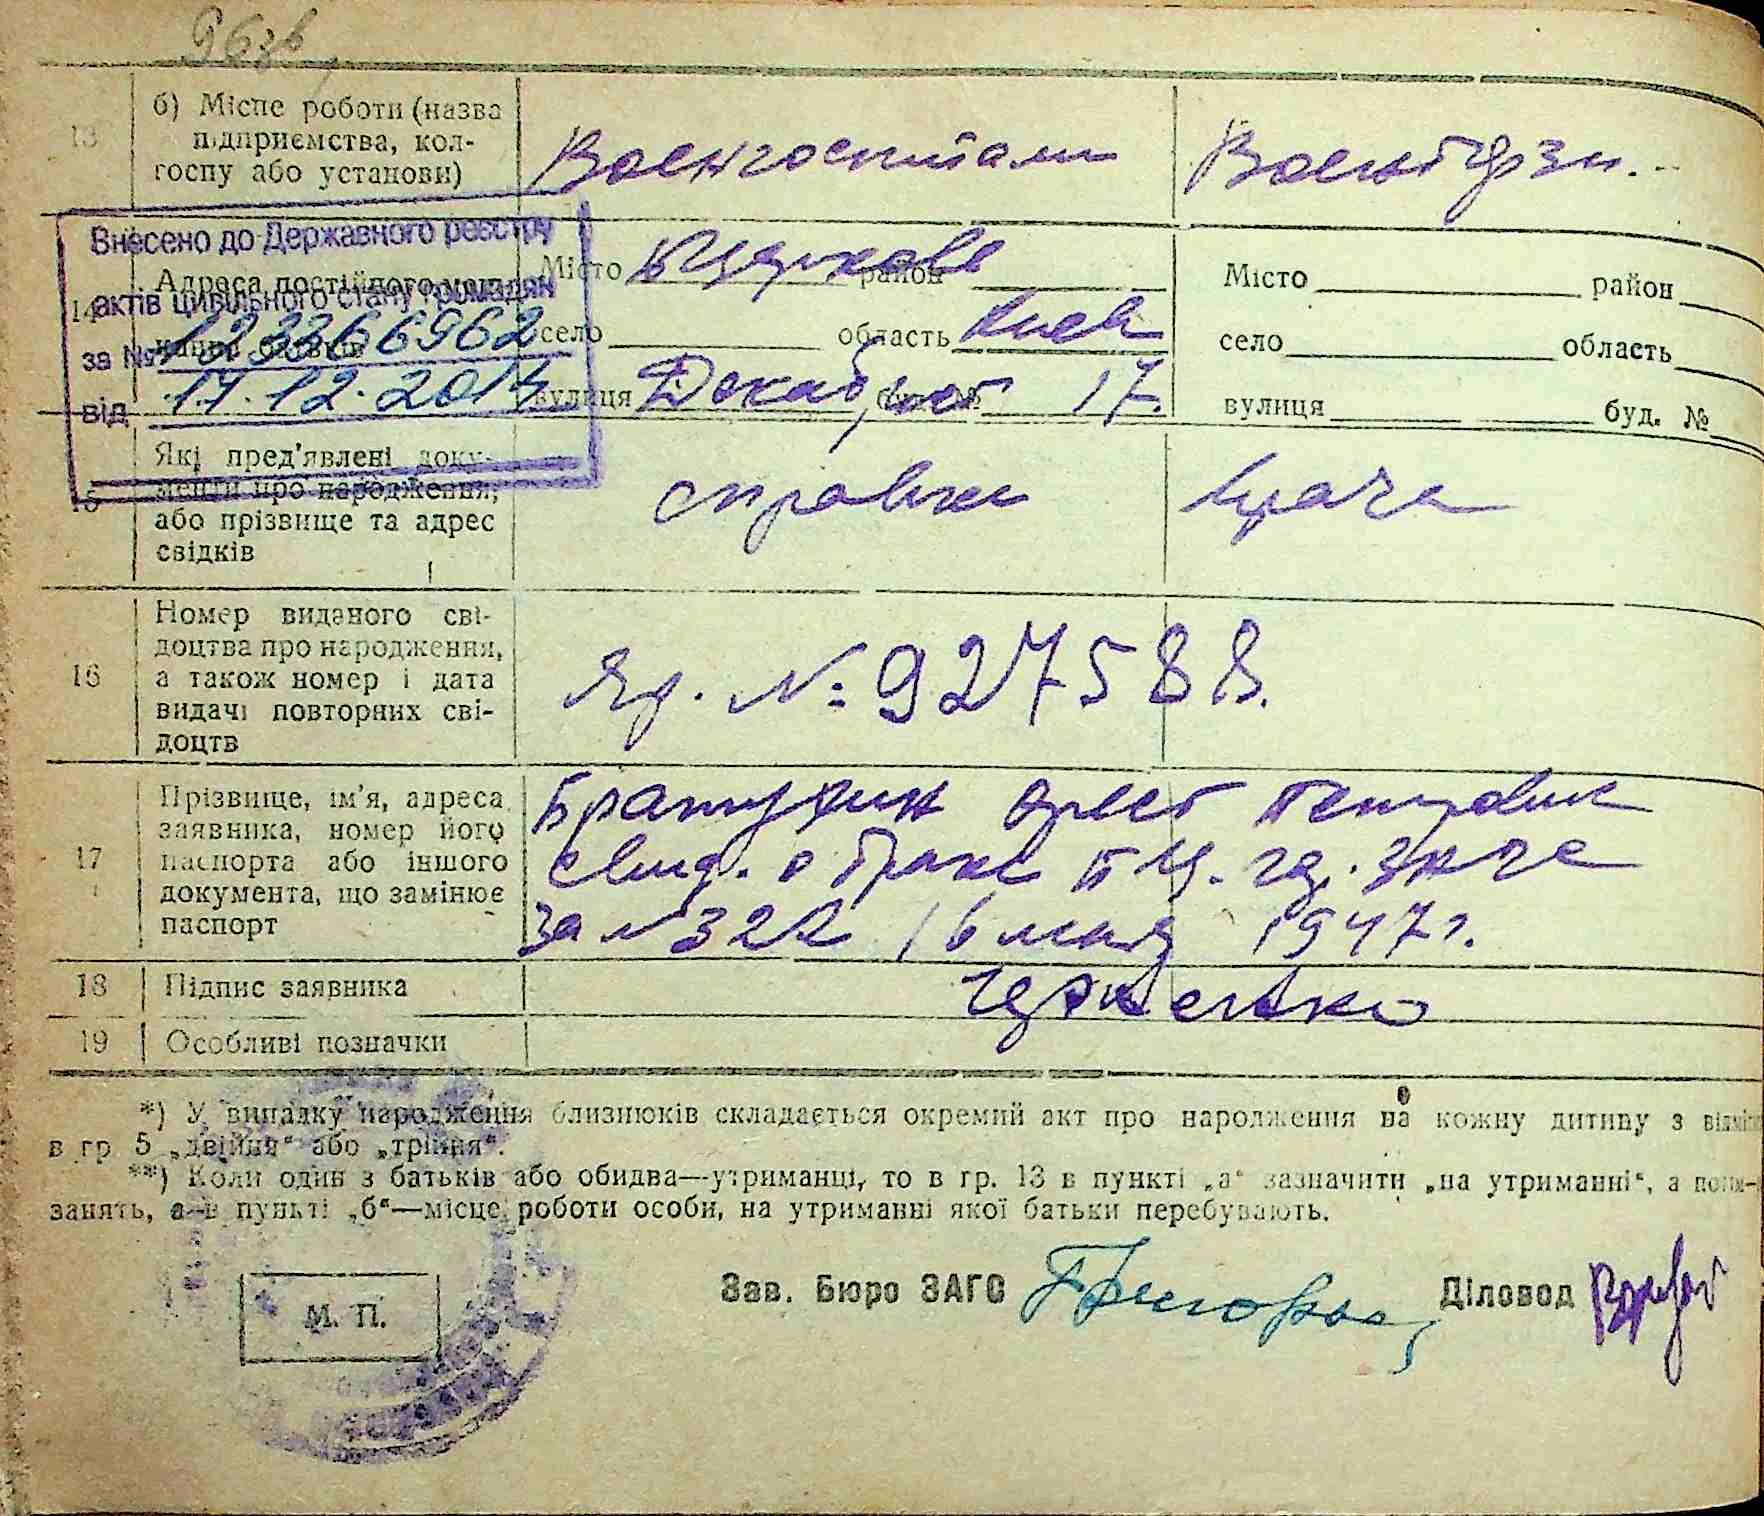 96зв
13
б) Місце роботи (назва
підприємства, кол-
госпу або установи)
Военгоспитали
Внесено до Державного реєстру
актів цивільного стану громадян
за № 12366962
від 17.12.2014
14
Адреса постійного меш-
Місто район
село область Киев
вулиця 17.
Місто район
село область
вулиця буд. №
15
Які пред'явлені доку-
менти про народження,
або прізвище та адрес
свідків
справка врача
16
Номер виданого сві-
доцтва про народження,
а також номер і дата
видачі повторних сві-
доцтв
№ 927588.
17
Прізвище, ім'я, адреса
заявника, номер його
паспорта або іншого
документа, що замінює
паспорт
Братухин Орест Петрович
свид. о браке
за №322 16 мая 1947 г.
18
Підпис заявника
19
Особливі позначки
*) У випадку народження близнюків складається окремий акт про народження на кожну дитину з
в гр 5 „двійня“ або „трійня“.
**) Коли один з батьків або обидва—утриманці, то в гр. 13 в пункті „а“ зазначити „на утриманні“, а
занять, а в пункті „б“—місце роботи особи, на утриманні якої батьки перебувають.
М. П.
Зав. Бюро ЗАГС
Діловод